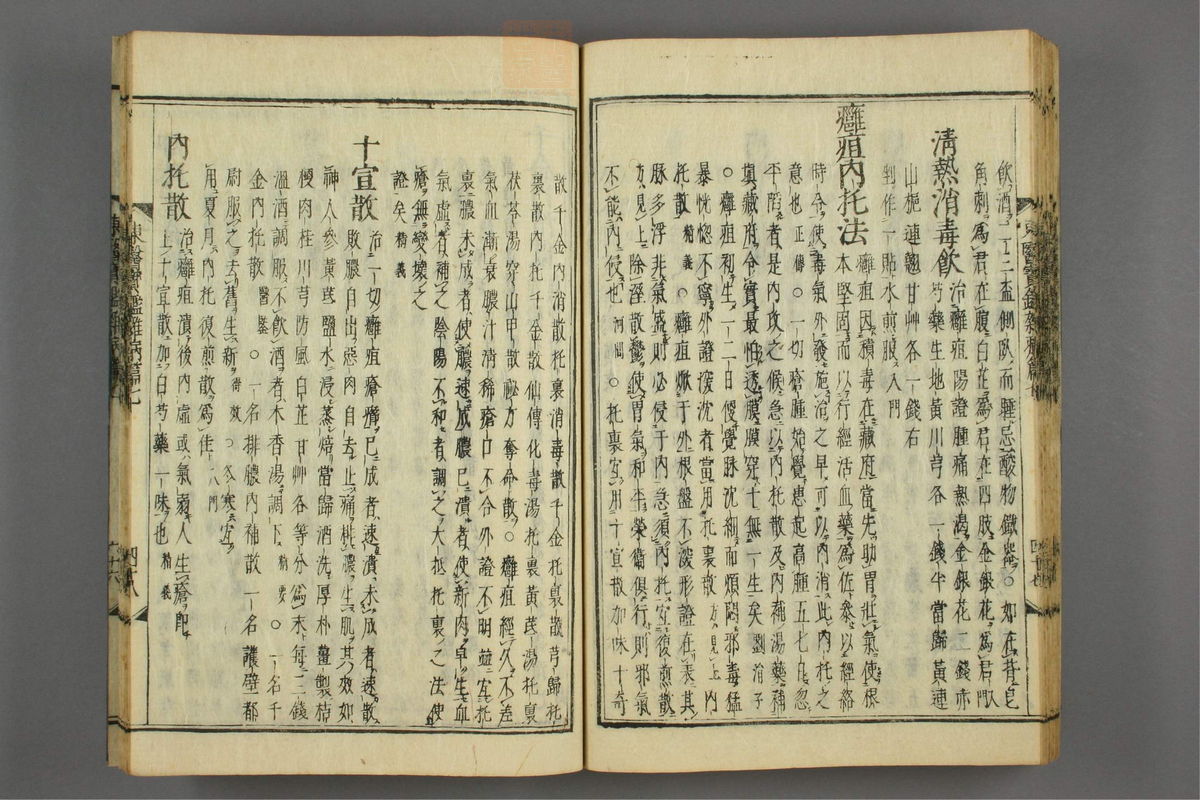 飲酒一二盃側臥而睡忌酸物鐵器○如在背皂
角刺爲君在腹白芷爲君在四肢金銀花爲君
清熱消毒飮治癰疽陽證腫痛熱渴金銀花二錢赤
芍藥生地黃川芎各一錢半當歸黃連
山梔連翹甘艸各一錢右
剉作一貼水煎服入門
癰疽內托法癰疽因積毒在藏府當先助胃壯氣使根
本堅固而以行經活血藥爲佐參以經絡
時令使毒氣外發施治之早可以內消此內托之
意也正傳○一切瘡腫始覺患起高腫五七日忽
平陷者是內攻之候急以內托散及內補湯藥補
塡藏府令實最怕透膜膜穿十無一生矣劉涓子
○癰疽初生一二日便覺脉沈細而煩悶邪毒猛
暴恍惚不寧外證深沈者當用托裏散方見上內
托散精義○癰疽㷔于外根盤不深形證在表其
脉多浮非氣盛則必侵于內急須內托宜復煎散
方見上除溼散鬱使胃氣和平榮衛俱行則邪氣
不能內侵也河間○托裏宜用十宣散加味十奇
散千金內消散托裏消毒散千金托裏散芎歸托
裏散內托千金散仙傳化毒湯托裏黃芪湯托裏
茯苓湯穿山甲散秘方奪命散○癰疽經久不差
氣血漸衰膿汁消稀瘡口不合外證不明並宜托
裏膿未成者使膿速成膿已潰者使新肉早生血
氣虛者補之陰陽不和者調之大抵托裏之法使
瘡無變壞之
證矣精義
十宣散治一切癰疽瘡癤已成者速潰未成者速散
敗膿自出惡肉自去止痛排膿生肌其效如
神人參黃芪鹽水浸蒸焙當歸酒洗厚朴薑製桔
梗肉桂川芎防風白芷甘艸各等分爲末每三錢
溫酒調服不飮酒者木香湯調下精要○一名千
金內托散醫鑑○一名排膿內補散一名護壁都
尉服之去舊生新得效○冬寒宜
用夏月內托復煎散爲佳入門
內托散治癰疽潰後內虛或氣弱人生瘡卽
上十宣散加白芍藥一味也精義